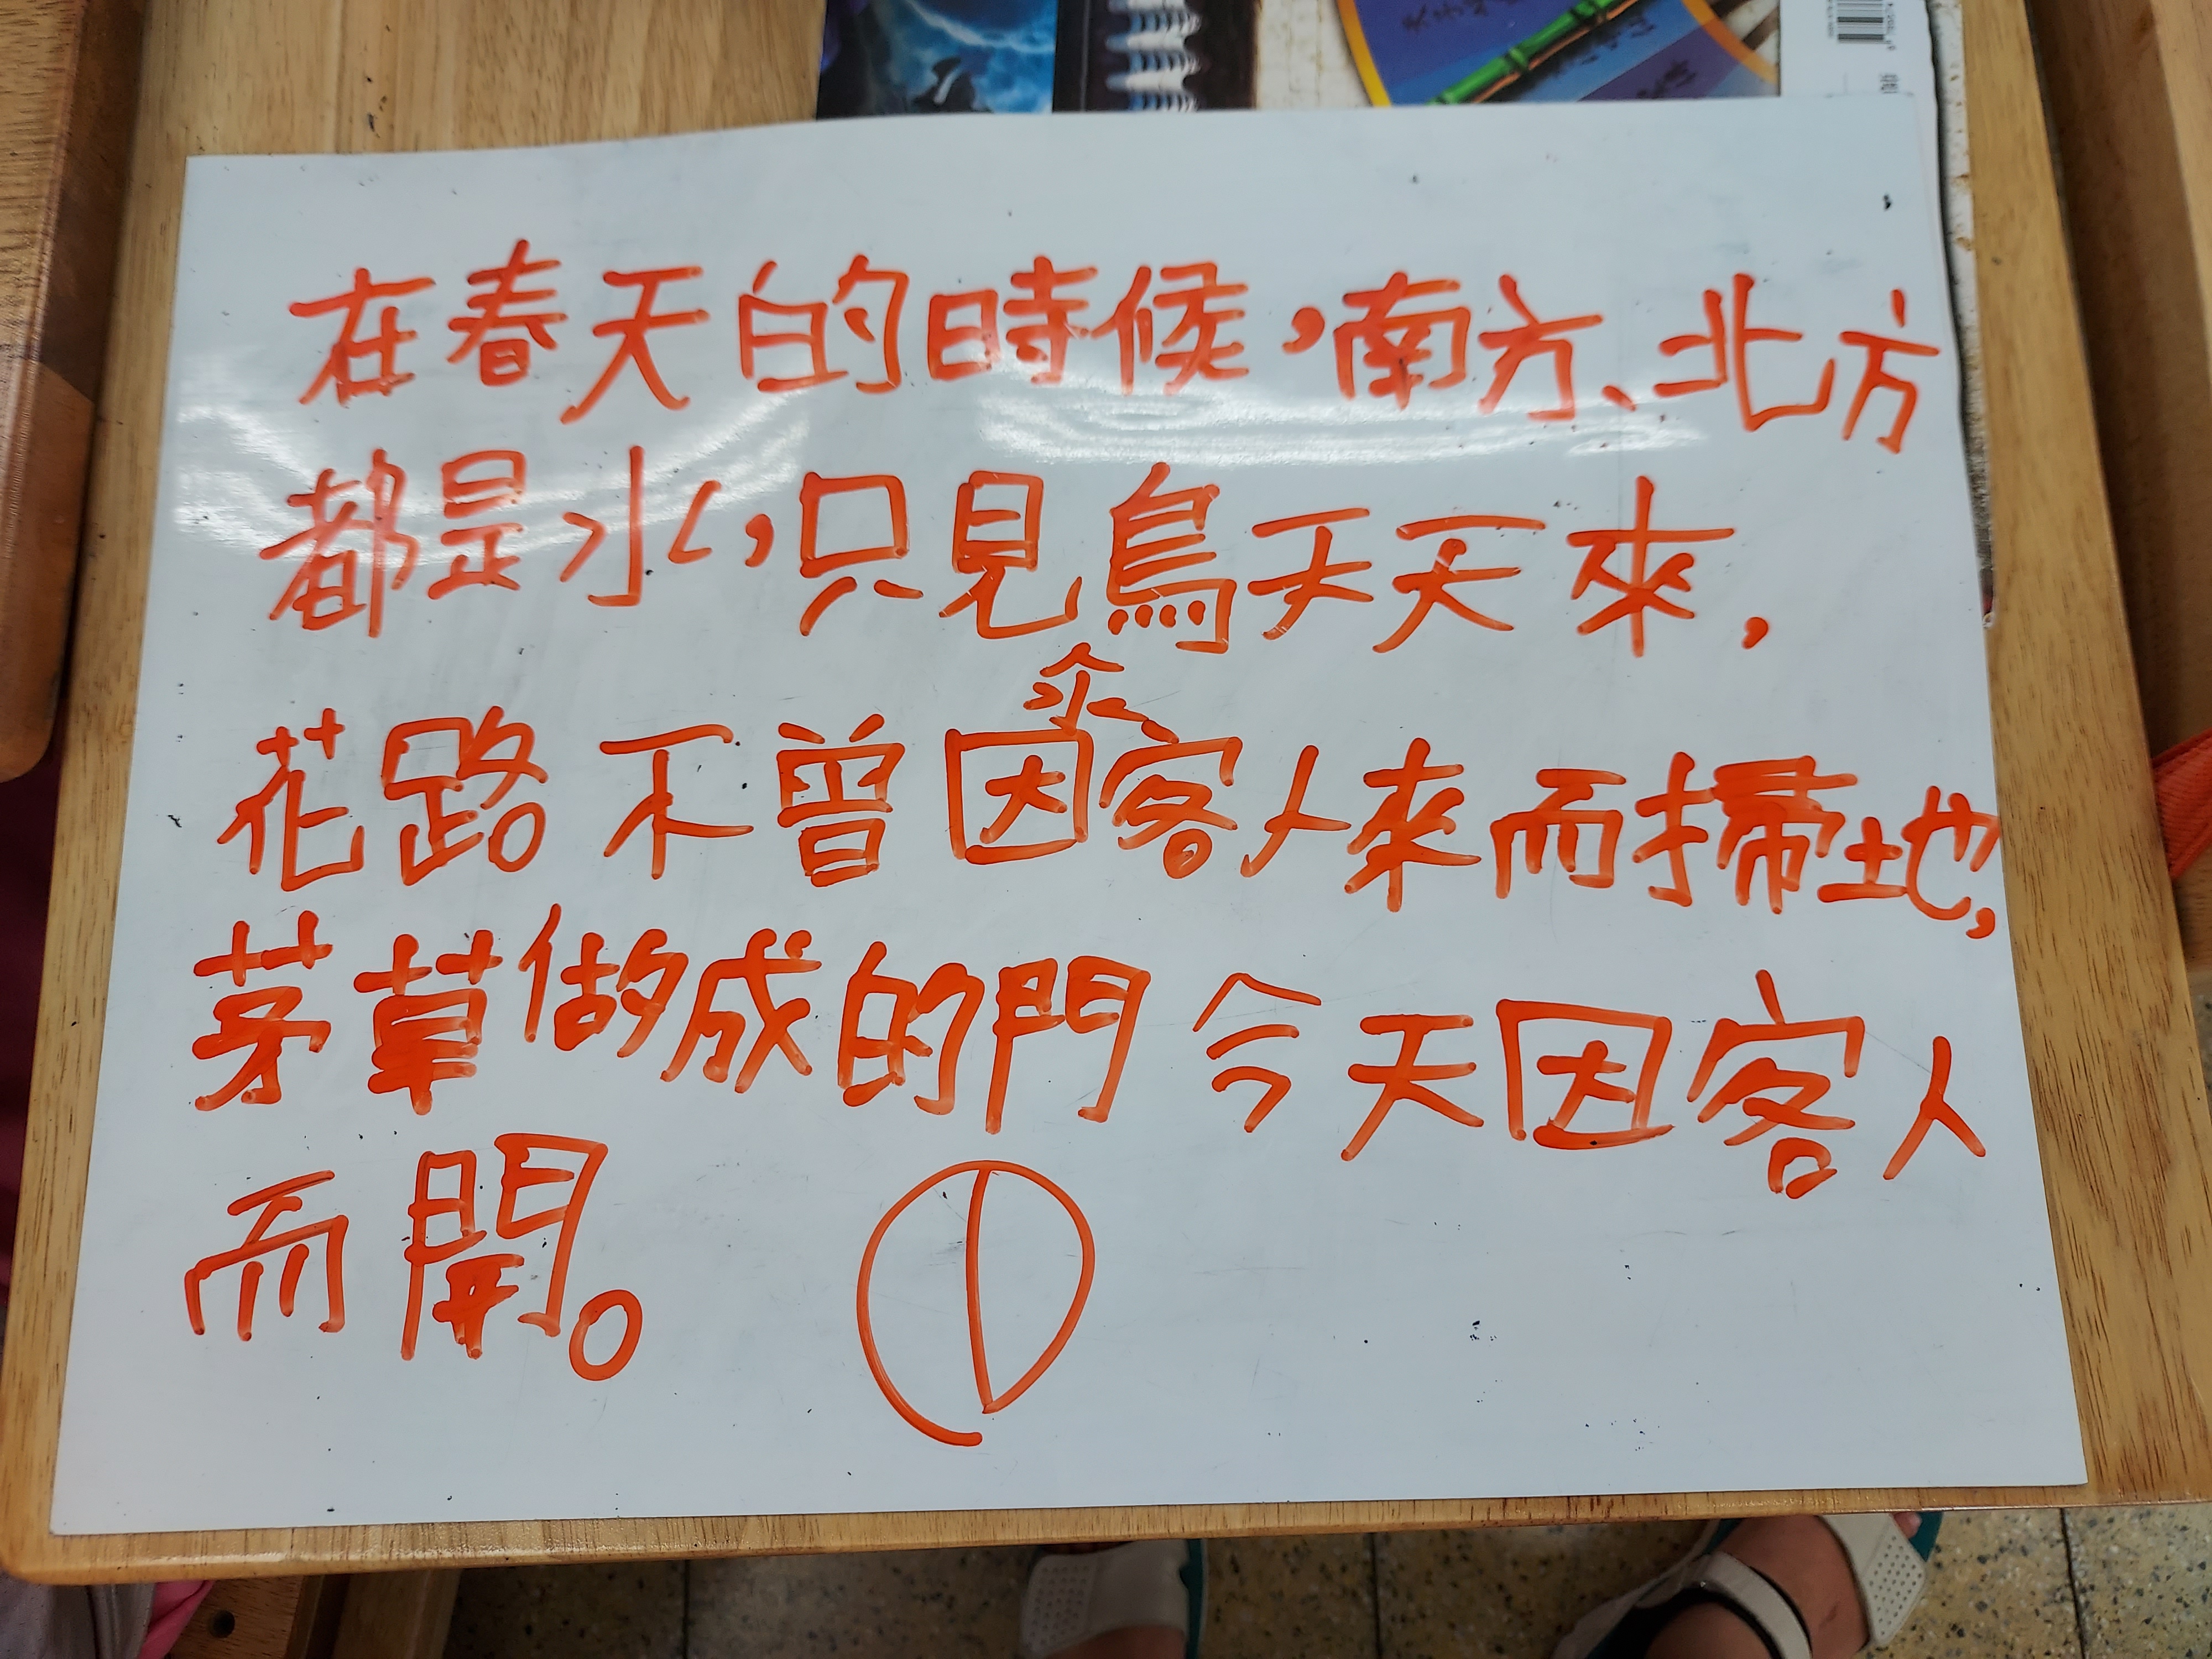 在春天的時候，南方、北方
都是水，只見鳥天天來，
花路。不曾因客人來而掃地，
茅草做成的門今天因客人
而開。